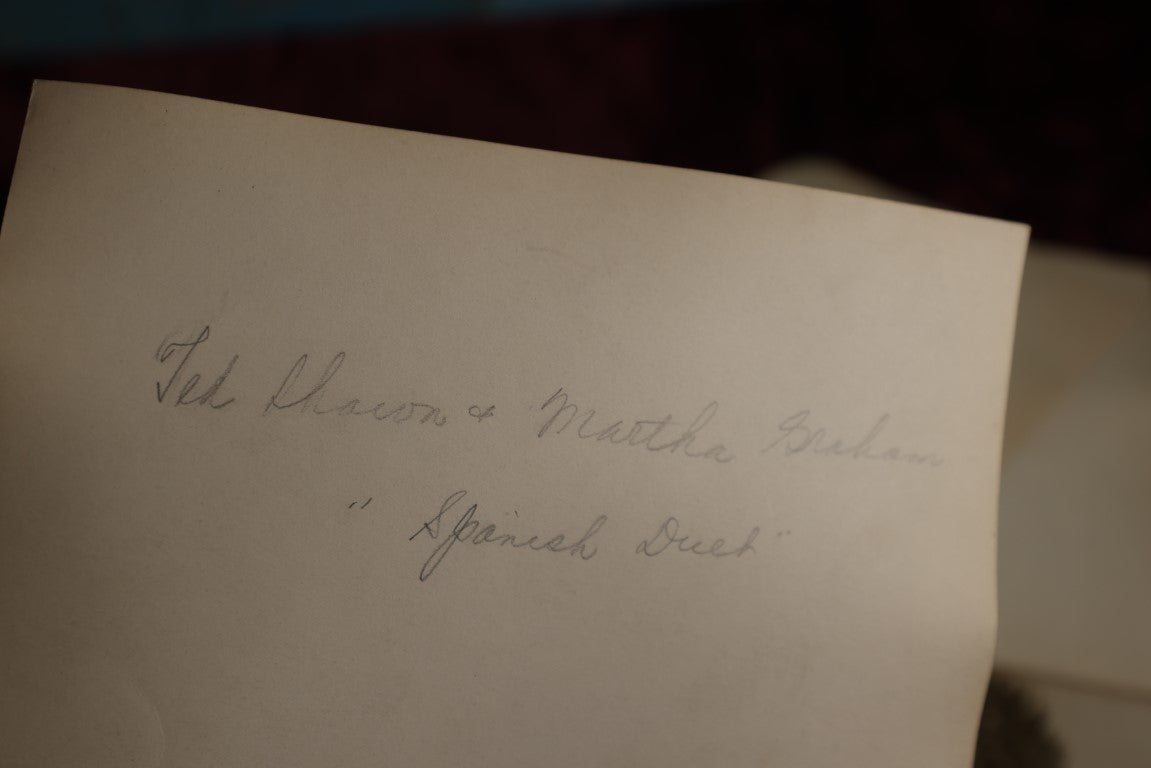 Ted Shawn & Martha Graham
" Spanish Duet "